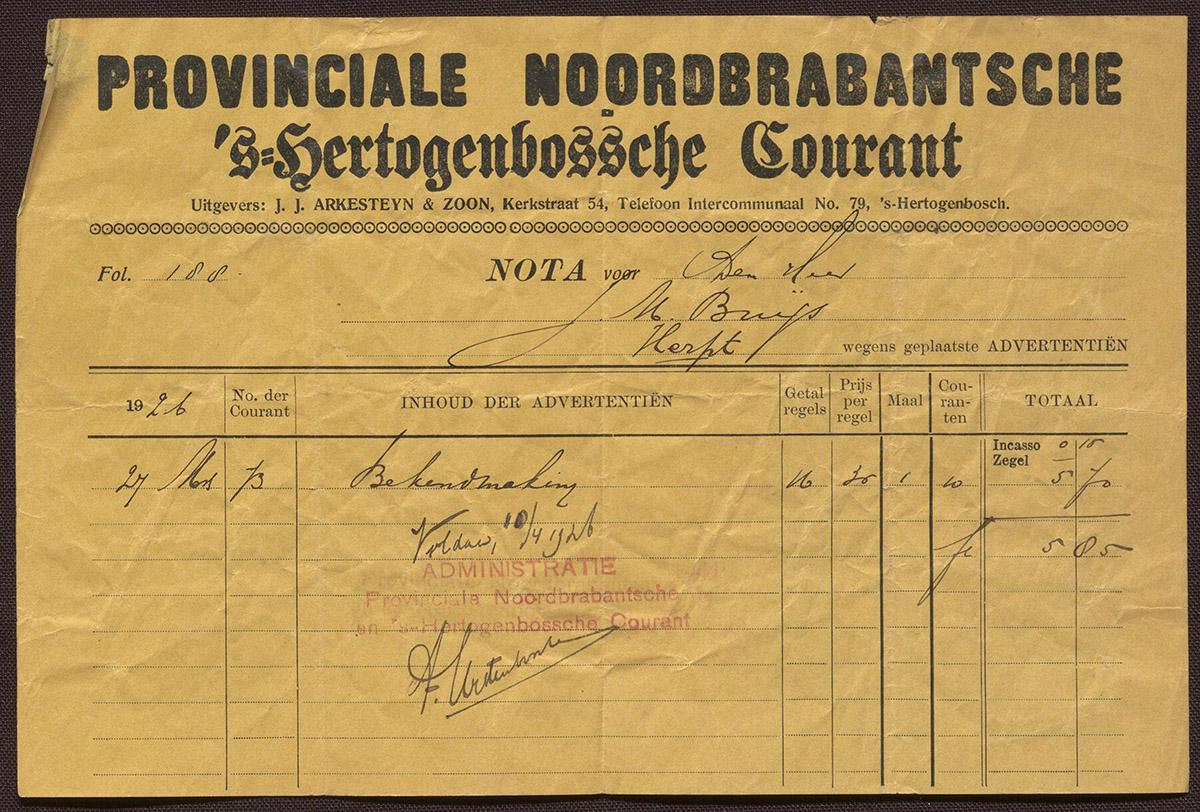 PROVINCIALE NOORDBRABANTSCHE
's-Hertogenbossche Courant
Uitgevers: J. J. ARKESTEYN & ZOON, Kerkstraat 54, Telefoon Intercommunaal No. 79, 's-Hertogenbosch.
Fol. 188. NOTA voor Den Heer
J. M. Bruijs
Herpt wegens geplaatste ADVERTENTIËN
1926 No. der Courant INHOUD DER ADVERTENTIËN Getal regels Prijs per regel Maal Cou-ran-ten TOTAAL
Incasso Zegel 0 15
27 Mrt 73 Bekendmaking 16 30 1 10 5 70
Voldaan, 10/4 1926
f 5 85
ADMINISTRATIE
Provinciale Noordbrabantsche
en 's-Hertogenbossche Courant